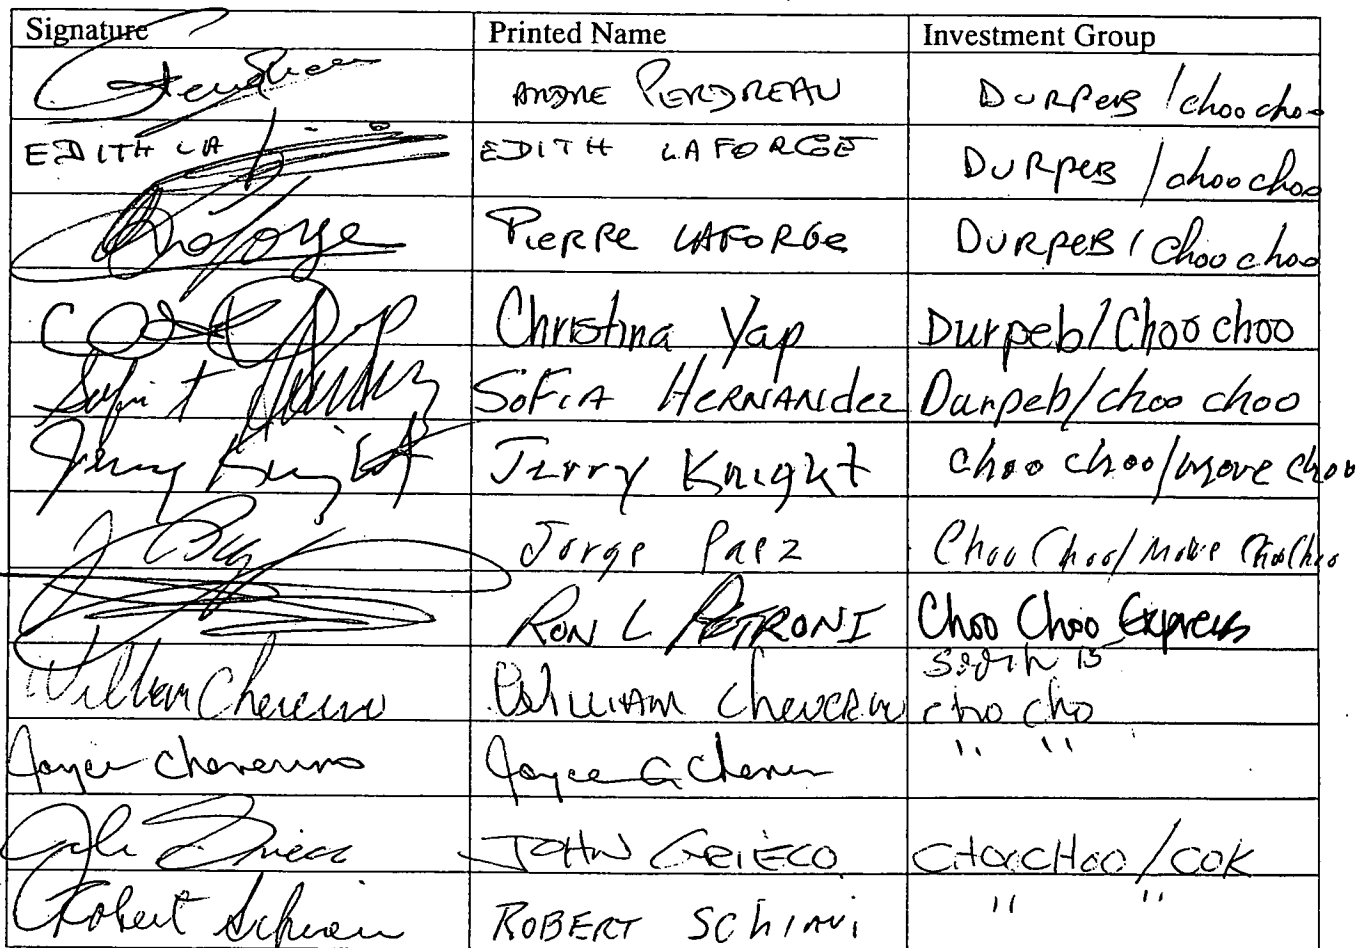 Signature Printed Name Investment Group
ANDRE PERDREAU DURPEB / choo choo
EDITH LA EDITH LAFORGE DURPEB / choo choo
Laforge PIERRE LAFORGE DURPEB / choo choo
Christina Yap Durpeb/Choo choo
SOFIA HERNANdez Durpeb/choo choo
Jerry Knight Jerry Knight choo choo/move choo
Jorge Paez Choo Choo/Move Choo Choo
RON L PETRONI Choo Choo Express
William WILLIAM cho cho
Joyce Joyce G " "
John Grieco JOHN GRIECO CHOOCHOO/COK
Robert Schiavi ROBERT SCHIAVI " "